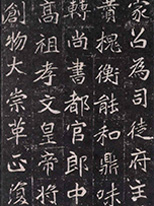 家召為司徒府主
蕡槐衡能和鼎味
轉尚書都官郎中
高祖孝文皇帝將
創物大崇革正復